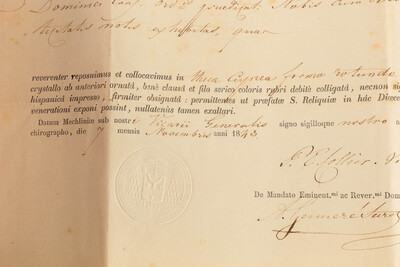 Dominici
authenticitatis notis exhibitas, quas
reverenter reposuimus et collocavimus in theca cuprea forma rotunda
crystallo ab anteriori ornatâ, benè clausâ et filo serico coloris rubri debitè colligatâ, necnon si
hispanicâ impresso, firmiter obsignatâ: permittentes ut præfatæ S. Reliquiæ in hâc Diœce
venerationi exponi possint, nullatenùs tamen exaltari.
Datum Mechliniæ sub nostri Vicarii Generalis signo sigilloque nostro
chirographo, die 7 mensis Novembris anni 1843
De Mandato Eminent.mi ac Rever.mi Dom